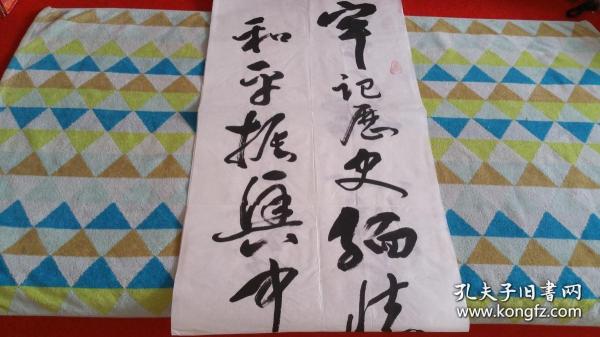 牢记历史缅怀
和平振兴中
孔夫子旧书网
www.kongfz.com